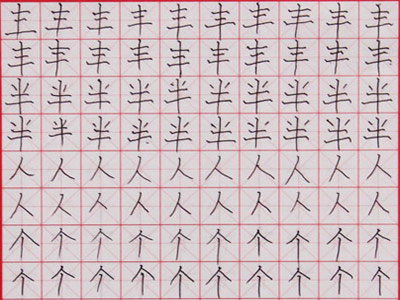 丰丰丰丰丰丰丰丰丰丰
丰丰丰丰丰丰丰丰丰丰
半半半半半半半半半半
半半半半半半半半半半
人人人人人人人人人人
人人人人人人人人人人
个个个个个个个个个个
个个个个个个个个个个